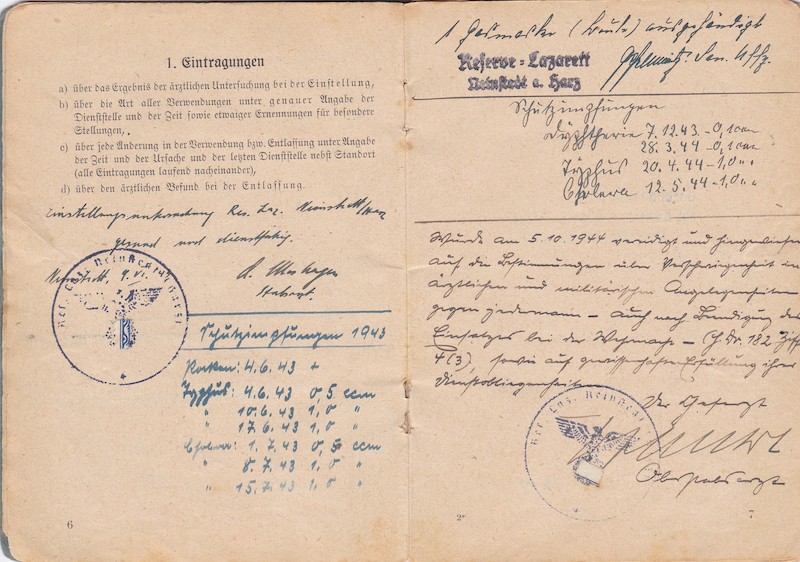 1. Eintragungen
a) über das Ergebnis der ärztlichen Untersuchung bei der Einstellung,
b) über die Art aller Verwendungen unter genauer Angabe der
Dienststelle und der Zeit sowie etwaiger Ernennungen für besondere
Stellungen,
c) über jede Änderung in der Verwendung bzw. Entlassung unter Angabe
der Zeit und der Ursache und der letzten Dienststelle nebst Standort
(alle Eintragungen laufend nacheinander),
d) über den ärztlichen Befund bei der Entlassung.
Einstellungsuntersuchung Res. Laz. Neinstedt/Harz
gesund und dienstfähig.
Neinstedt, 9. VI.
Stabarzt.
Res. Laz. Neinstedt Harz
Schutzimpfungen 1943
Pocken: 4.6.43 +
Typhus: 4.6.43 0,5 ccm
" 10.6.43 1,0 "
" 17.6.43 1,0 "
Cholera: 1.7.43 0,5 ccm
" 8.7.43 1,0 "
" 15.7.43 1,0 "
6
1 Gasmaske (Beute) ausgehändigt
San. Uffz.
Reserve-Lazarett
Neinstedt a. Harz
Schutzimpfungen
Dyphtherie 7.12.43 - 0,1 ccm
28.3.44 - 0,1 ccm
Typhus 20.4.44 - 1,0 " "
Cholera 12.5.44 - 1,0 " "
Wurde am 5.10.1944 vereidigt und hingewiesen
auf die Bestimmungen über Verschwiegenheit in
ärztlichen und militärischen Angelegenheiten
gegen jedermann - auch nach Beendigung des
Einsatzes bei der Wehrmacht - (H.Dv. 182 Ziff
4(3), sowie auf gewissenhafte Erfüllung ihrer
Dienstobliegenheiten.
Der Chefarzt
Res. Laz. Neinstedt
Oberstabsarzt
2*
7